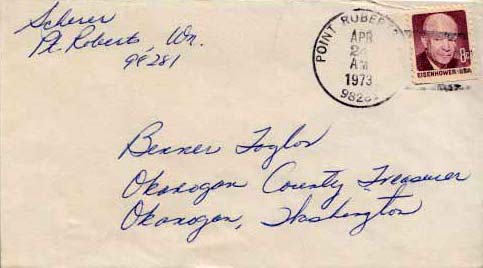 Scherer
Pt. Roberts, Wn.
98281
POINT ROBERTS
APR
24
AM
1973
98281
8¢
EISENHOWER·USA
Benner Taylor
Okanogan County Treasurer
Okanogan, Washington